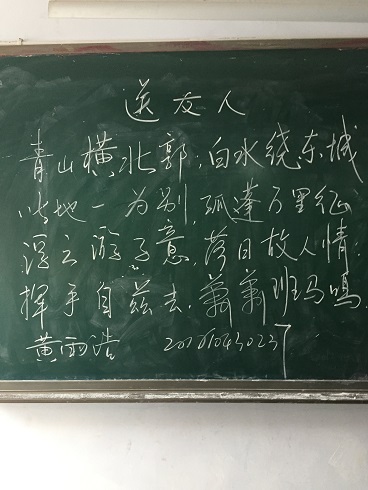 送友人
青山横北郭,白水绕东城
此地一为别,孤蓬万里征.
浮云游子意,落日故人情.
挥手自兹去,萧萧班马鸣.
黄雨浩 201610430237